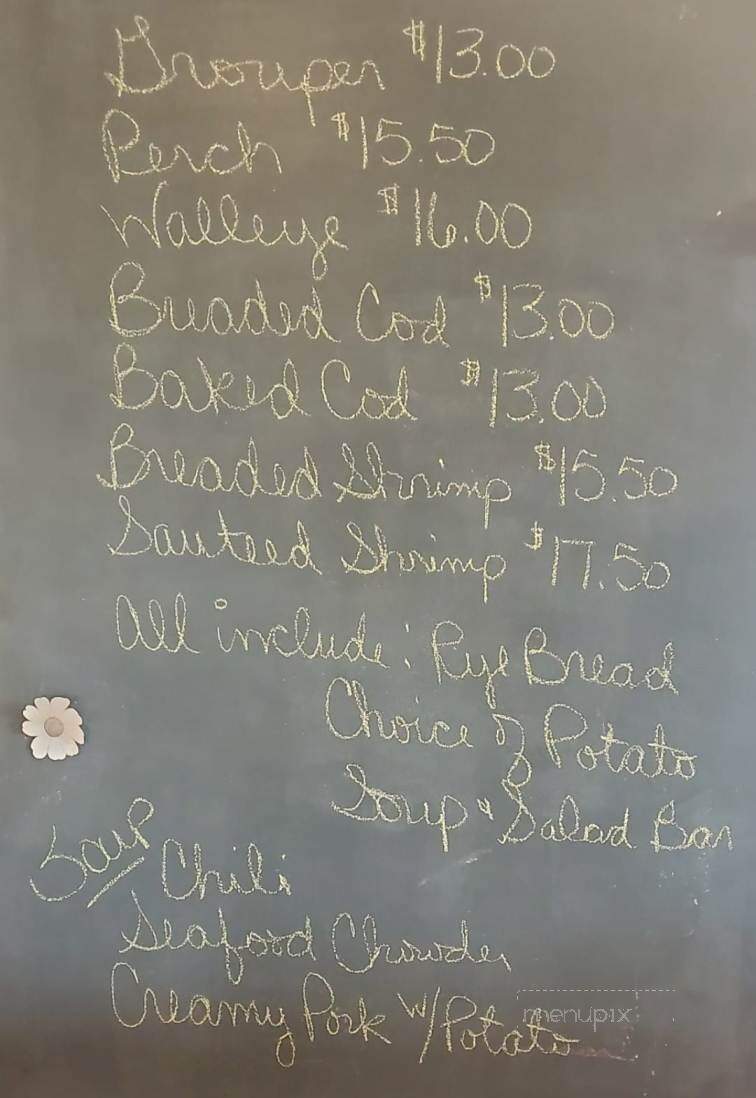 Grouper $13.00
Perch $15.50
Walleye $16.00
Breaded Cod $13.00
Baked Cod $13.00
Breaded Shrimp $15.50
Sauteed Shrimp $17.50
All include: Rye Bread
Choice of Potato
Soup & Salad Bar
Soup
Chili
Seafood Chowder
Creamy Pork w/Potato
menupix